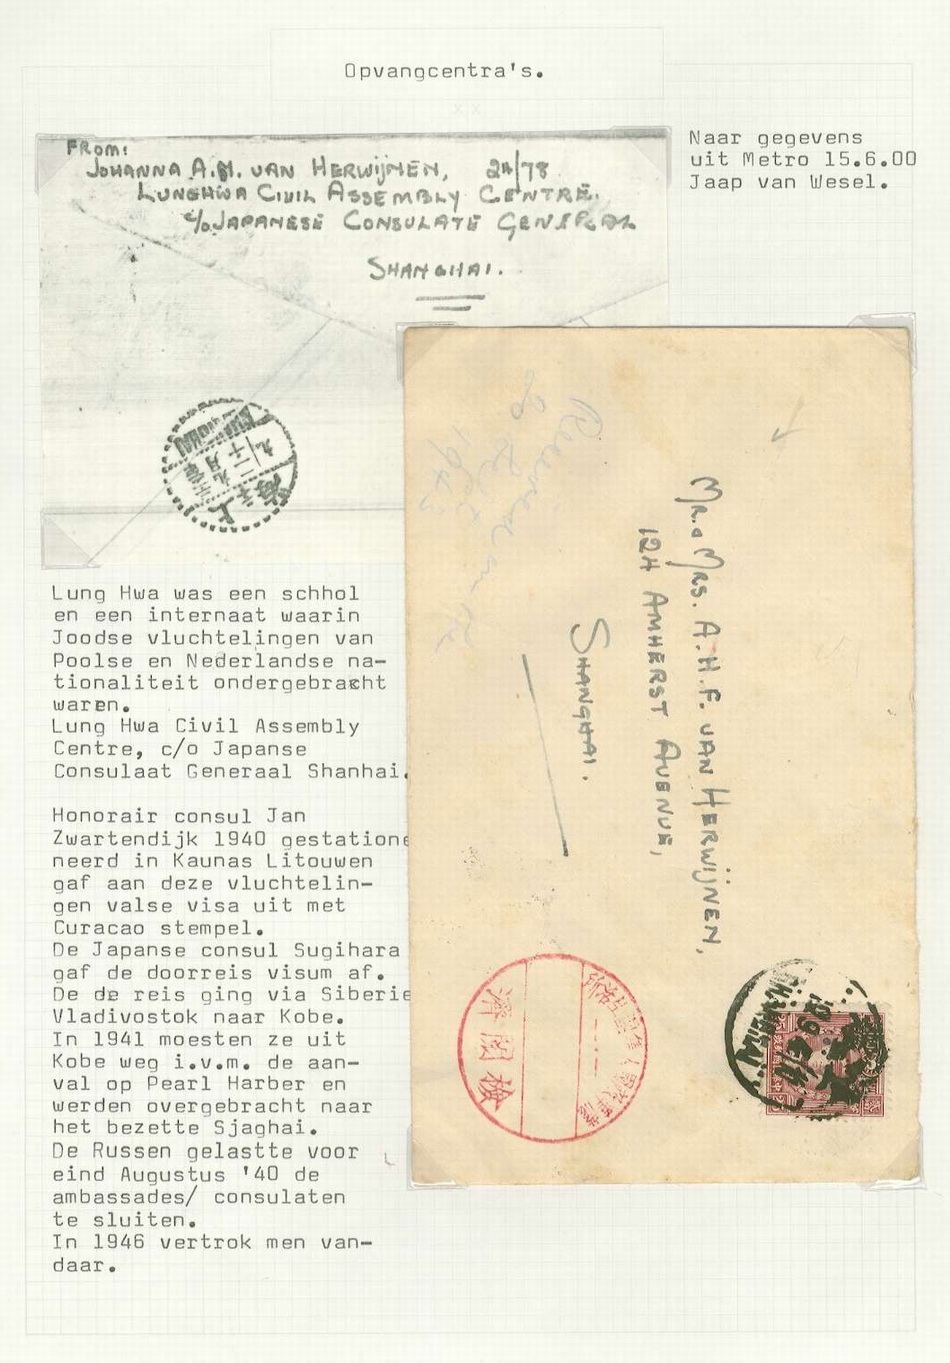 Opvangcentra's.
Naar gegevens
uit Metro 15.6.00
Jaap van Wesel.
FROM:
JOHANNA A.H. VAN HERWIJNEN, 24/78
LUNGHWA CIVIL ASSEMBLY CENTRE.
c/o JAPANESE CONSULATE GENERAL
SHANGHAI.
SHANGHAI
上海
Lung Hwa was een schhol
en een internaat waarin
Joodse vluchtelingen van
Poolse en Nederlandse na-
tionaliteit ondergebracht
waren.
Lung Hwa Civil Assembly
Centre, c/o Japanse
Consulaat Generaal Shanhai.
Honorair consul Jan
Zwartendijk 1940 gestatione
neerd in Kaunas Litouwen
gaf aan deze vluchtelin-
gen valse visa uit met
Curacao stempel.
De Japanse consul Sugihara
gaf de doorreis visum af.
De de reis ging via Siberie
Vladivostok naar Kobe.
In 1941 moesten ze uit
Kobe weg i.v.m. de aan-
val op Pearl Harber en
werden overgebracht naar
het bezette Sjaghai.
De Russen gelastte voor
eind Augustus '40 de
ambassades/ consulaten
te sluiten.
In 1946 vertrok men van-
daar.
MR. & MRS. A.H.F. VAN HERWIJNEN,
124 AMHERST AVENUE,
SHANGHAI.
Received
20 Sept
1943